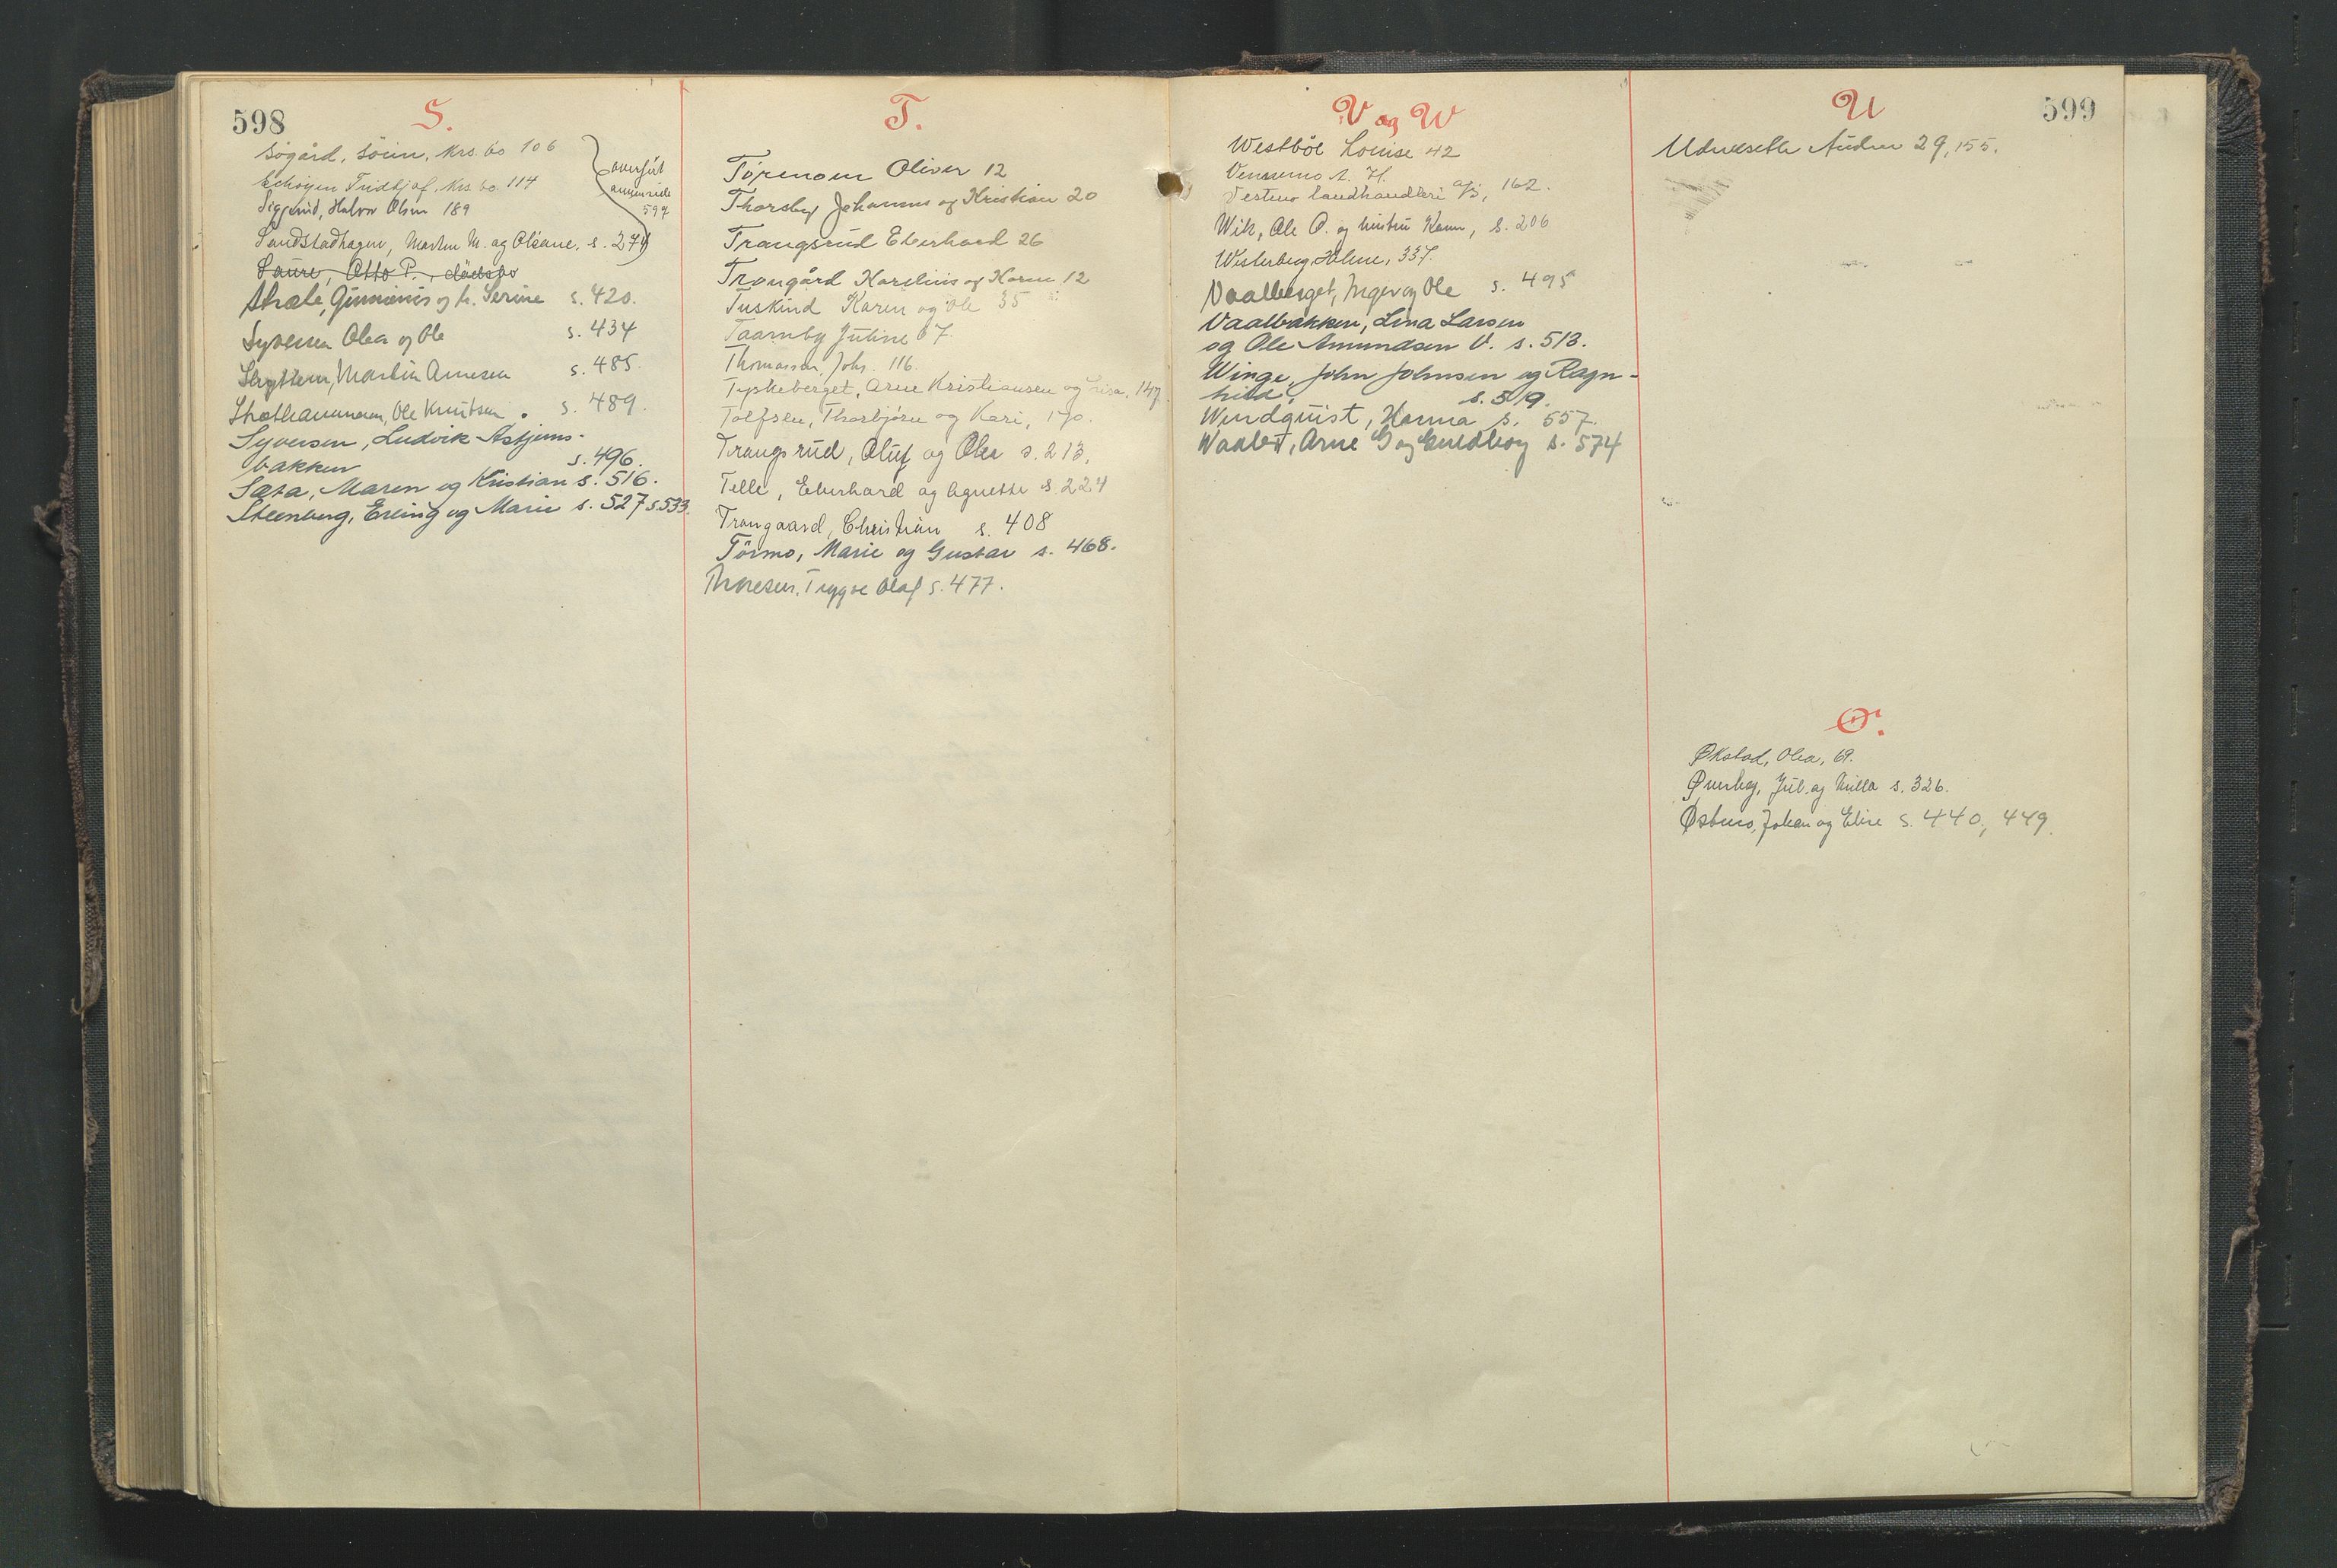 598
S.
Søgård, Søren, krs. bo 106
Fridtjof, krs. bo. 114
Halvor Olsen 189
Sandstadhagen, Morten M. og Oleane, s. 274
overført
annen side
597
Saure, Otto P., dødsbo
Stræte, Gunnerius og h. Serine s. 420.
Syversen Olea og Ole s. 434
Martin Arnesen s. 485.
Ole Knutsen. s. 489.
Syversen, Ludvik Astjerns-
bakken s. 496.
Sæta, Maren og Kristian s. 516.
Steenberg, Erling og Marie s. 527 s. 533.
T.
Tørenoen Oliver 12
Thorsby Johannes og Kristian 20
Trangsrud Eberhard 26
Trongård Karelius og Karen 12
Tuskind Karen og Ole 35
Taarnby Juline 67.
Thomassen, Johs. 116.
Tyskeberget, Arne Kristiansen og Lisa, 147
Tolfsen, Thorbjørn og Kari, 170.
Trangsrud, Oluf og Olea s. 213.
Telle, Eberhard og Agnethe s. 224
Trongaard, Christian s. 408
Törmo, Marie og Gustav s. 468.
Thoresen, Trygve Olaf s. 477.
V og W
Westböe Louise 42
Vennemo A. H.
Vestmo landhandleri a/s, 162.
Wik, Ole O. og hustru Karen, s. 206
Westerberg, Helene, 337.
Vaalberget, Inger og Ole s. 495
Vaalbakken, Lina Larsen
og Ole Amundsen V. s. 513.
Winge, John Johnsen og Ragn-
hild, s. 519.
Windquist, Hanna s. 557.
Waaler, Arne G og Guldborg s. 574
U
599
Udnesseth Andrea 29, 155.
Ø.
Økstad, Olea, 69.
Øverby, Jul. og Milla s. 326.
Østmo, Johan og Elise s. 440, 449.